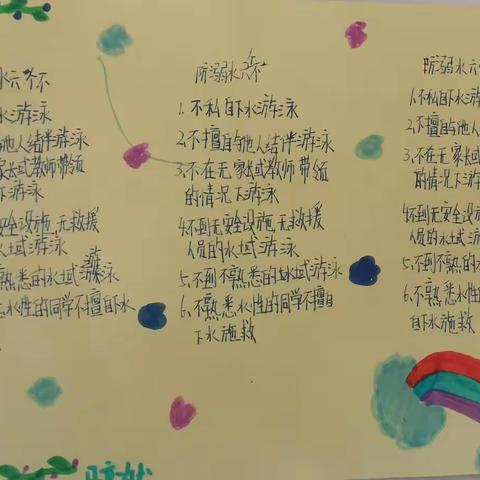 水六个不
水游泳
他人结伴游泳
家长或教师带领
下游泳
安全设施,无救援
水域游泳
熟悉的水域游泳
游
水性的同学不擅自下水
防溺水六个不
1.不私自下水游泳
2.不擅自与他人结伴游泳
3.不在无家长或教师带领
的情况下游泳
4.不到无安全设施,无救援
人员的水域游泳
5.不到不熟悉的水域游泳
6.不熟悉水性的同学不擅自
下水施救
防溺水六个
1.不私自下水游
2.不擅自与他人
3.不在无家长
的情况下游
4.不到无安全设
人员的水域游
5.不到不熟的水
6.不熟悉水性
自下水施救